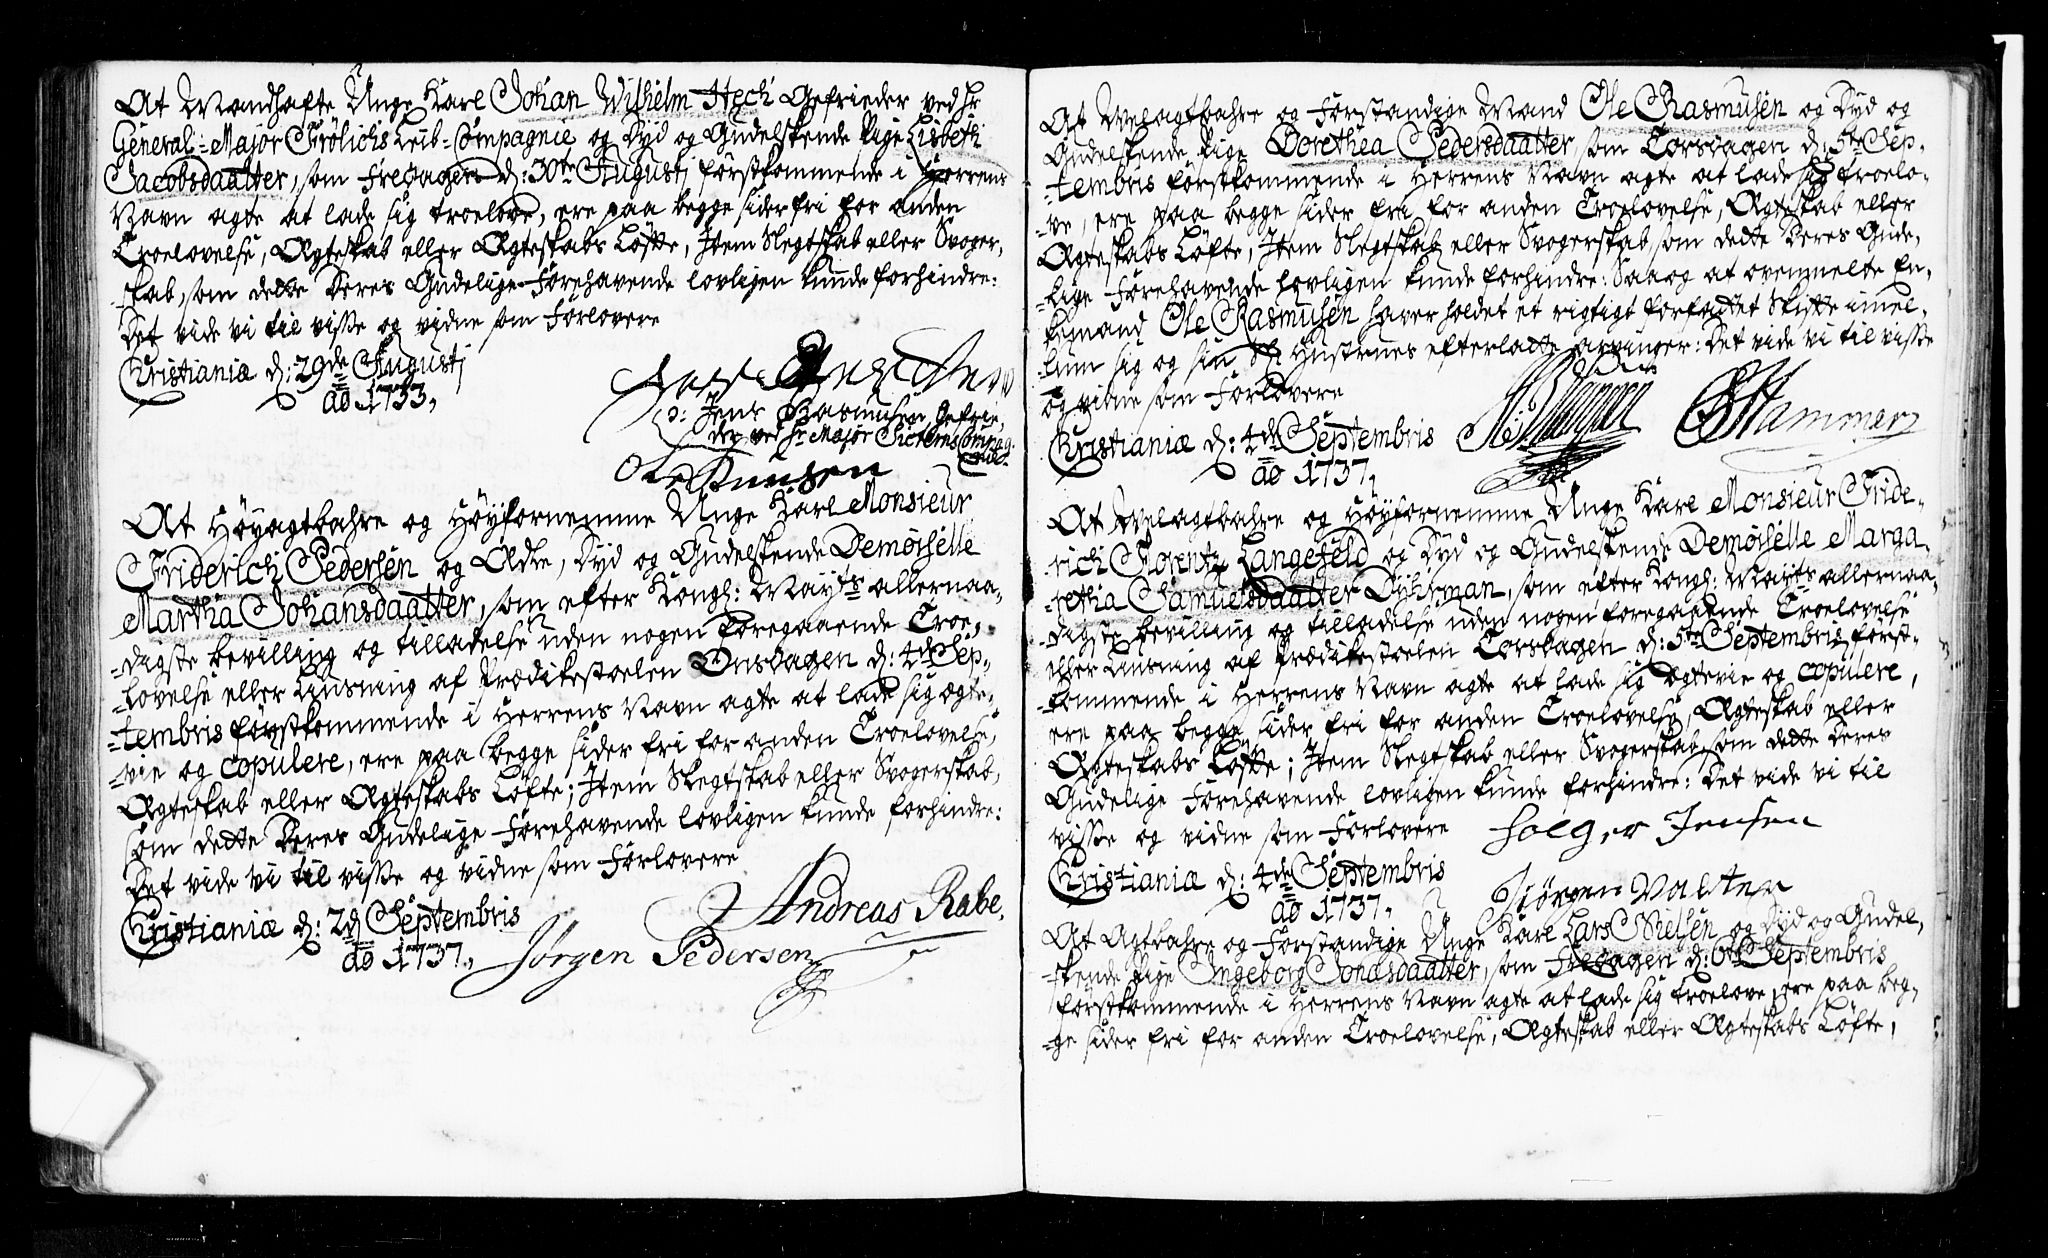 At Mandhafte Unge Karl Johan Wilhelm Hech Gefrieder ved Hr
General-Major Frølichs Leib-Compagnie og Dyd og Gudelskende Pige Lisbeth
Jacobsdaatter, som Fredagen d: 30te Augustj førstkommende i Herrens
Navn agte at lade sig troelove, ere paa begge sider fri for anden
Troelovelse, Ægteskab eller Ægteskabs Løfte, Item Slegtskab eller Svoger-
-skab, som dette Deres Gudelige Forehavende lovligen kunde forhindre:
Det vide vi til visse og vidne som Forlovere
Christiania d: 29de Augustj
ao 1737.
ↄ: Jens Rasmusen Gefrie-
der ved Hr Major Sickems Compag-
nie.
Ole Knudsen
At Høyagtbahre og Høyfornemme Unge Karl Monsieur
Friderich Pedersen og Ædle, Dyd og Gudelskende Demoiselle
Martha Johansdaatter, som efter Kongl: Mayts allernaa-
-digste bevilling og tilladelse uden nogen foregaaende Troe-
-lovelse eller Liusning af Prædikestoelen Onsdagen d: 4de Sep-
-tembris førstkommende i Herrens Navn agte at lade sig ægte-
-vie og copulere, ere paa begge sider fri for anden Troelovelse,
Ægteskab eller Ægteskabs Løfte; Item Slegtskab eller Svogerskab,
som dette Deres Gudelige Forehavende lovligen kunde forhindre:
Det vide vi til visse og vidne som Forlovere
Christiania d: 2d Septembris
ao 1737.
Andreas Rabe.
Jørgen Pedersen
At Welagtbahre og Forstandige Mand Ole Rasmusen og Dyd og
Gudelskende Pige Dorethea Pedersdaatter, som Torsdagen d: 5te Sep-
-tembris førstkommende i Herrens Navn agte at lade sig troelo-
-ve, ere paa begge sider fri for anden Troelovelse, Ægteskab eller
Ægteskabs Løfte, Item Slegtskab eller Svogerskab, som dette Deres Gude-
-lige Forehavende lovligen kunde forhindre: Saa og at ovenmelte En-
-kemand Ole Rasmusen haver holdet et rigtigt forfattet Skifte imel-
-lum sig og sin Sl: Hustrues efterladte arvinger: Det vide vi til visse
og vidne som Forlovere
Christiania d: 4de Septembris
ao 1737.
Hammer
At Welagtbahre og Høyfornemme Unge Karl Monsieur Fride-
-rich Florentz Langefeld og Dyd og Gudelskende Demoiselle Marga-
-retha Samuelsdaatter Dührman, som efter Kongl: Mayts allernaa-
-digste bevilling og tilladelse uden nogen foregaaende Troelovelse
eller Liusning af Prædikestoelen Torsdagen d: 5te Septembris først-
-kommende i Herrens Navn agte at lade sig ægtevie og copulere,
ere paa begge sider fri for anden Troelovelse, Ægteskab eller
Ægteskabs Løfte; Item Slegtskab eller Svogerskab, som dette Deres
Gudelige Forehavende lovligen kunde forhindre: Det vide vi til
visse og vidne som Forlovere
Holger Jensen
Christiania d: 4de Septembris
ao 1737.
Jørgen Valster
At Agtbahre og Forstandige Unge Karl Lars Nielsen og Dyd og Gudel-
-skende Pige Ingeborg Tordsdaatter, som Fredagen d: 6te Septembris
førstkommende i Herrens Navn agte at lade sig troelove, ere paa beg-
-ge sider fri for anden Troelovelse, Ægteskab eller Ægteskabs Løfte,